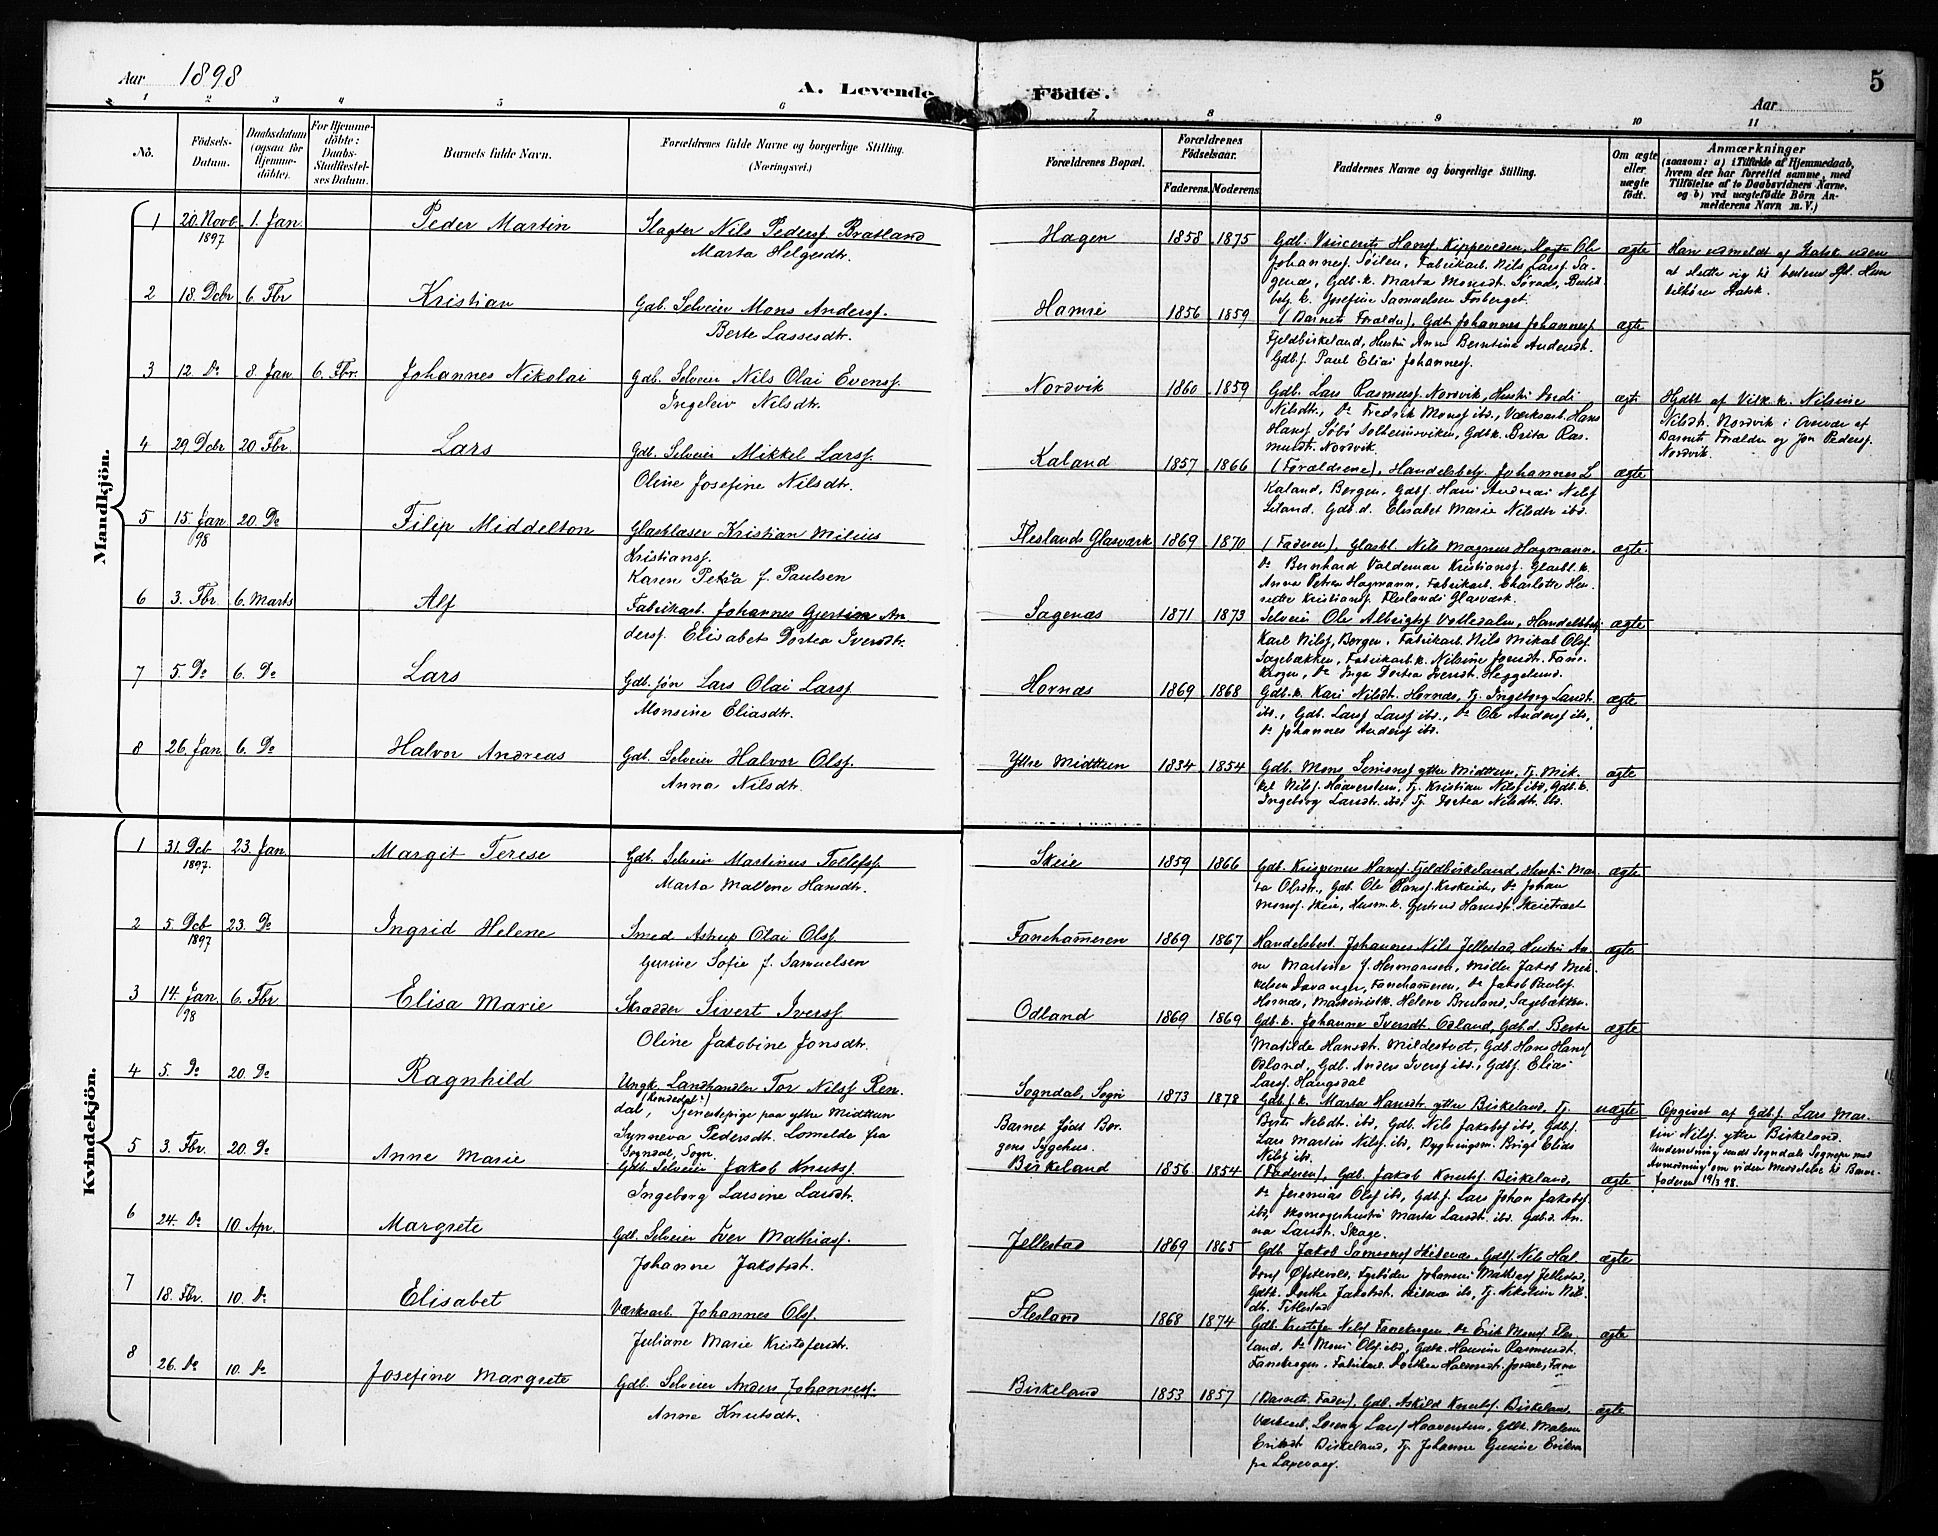 Aar 1898
A. Levende Födte.
5
Aar
1 2 3 4 5 6 7 8 9 10 11
No.
Födsels-Datum.
Daabsdatum (ogsaa for Hjemme-döbte).
For Hjemme-döbte: Daabs-Stadfæstel-ses Datum.
Barnets fulde Navn.
Forældrenes fulde Navne og borgerlige Stilling. (Næringsvei.)
Forældrenes Bopæl.
Forældrenes Födselsaar.
Faderens. Moderens.
Faddernes Navne og borgerlige Stilling.
Om ægte eller uægte födt.
Anmærkninger
(saasom: a) i Tilfælde af Hjemmedaab, hvem der har forrettet samme, med Tilföielse af to Daabsvidners Navne, og b) ved uægtefödte Börn An-melderens Navn m. V.)
Mandkjön.
1 20. Novb. 1897 1. Jan. Peder Martin Slagter Nils Pedersf. Bratland
Marta Helgesdtr.
Hagen 1858 1875 ægte
2 18. Dcbr 6. Fbr Kristian Gdb. Selveier Mons Andersf.
Berte Lassesdtr.
Hamre 1856 1859 (Barnets Forældre), Gdb. Johannes Johannesf.
Fjeldbirkeland, Hustru Anna Berntine Andersdt.
Gdb.f. Paul Elias Johannesf.
ægte
3 12. Do 8. Jan 6. Fbr. Johannes Nikolai Gdb. Selveier Nils Olai Evensf.
Ingeleiv Nilsdtr.
Nordvik 1860 1859 Gdb. Lars Rasmusf. Nordvik, Hustru
Nilsdtr., Do Fredrik Monsf ibd., Værksarb. Hans
Hansf. Søbø Solheimsviken, Gdbk. Brita Ras-
musdt. Nordvik.
Hjdbt af Nilsine
Nilsdt. Nordvik i Overvær af
Barnets Forældre og Jon Pedersf.
Nordvik.
4 29. Dcbr 20. Fbr Lars Gdb. Selveier Mikkel Larsf.
Oline Josefine Nilsdtr.
Kaland 1857 1866 (Forældrene), Handelsbetj. Johannes L
Kaland, Bergen, Gdbf. Hans Andreas Nilsf
Gdb.d. Elisabet Marie Nilsdtr ibd.
ægte
5 15. Jan 98 20. Do Filip Middelton Glasblaser Kristian Milius
Kristiansf.
Karen Petra f. Paulsen
Fleslands Glasværk 1869 1870 (Faderen), Glasbl. Nils Magnus Hagmann,
Do Bernhard Valdemar Kristiansf. Glasbl.k.
Anna Petrea Hagmann, Fabrikarb. Charlotte Hen-
Kristiansf. Fleslands Glasværk.
ægte.
6 3. Fbr. 6. Marts Alf Fabrikarb. Johannes Gjertin An-
dersf. Elisabet Dortea Iversdtr.
Sagenæs 1871 1873 Selveier Ole Albrigtsf Valledalen, Handelsbetj
Karl Nilsf, Bergen, Fabrikarb. Nils Mikal Olsf.
Sagebækken, Fabrikarb.k. Nilsine
Do Inga Dortea Iversdt.
ægte
7 5. Do 6. Do Lars Gdb. sön Lars Olai Larsf.
Monsine Eliasdtr.
Hornæs 1869 1868 Gdb.k. Kari Nilsdt. Hornæs, Tj. Ingeborg Larsdt.
ibd., Gdb. Larsf Larsf ibd., Do Ole Andersf ibd.,
Do Johannes Andersf ibd.
ægte
8 26. Jan 6. Do Halvor Andreas Gdb. Selveier Halvor Olsf.
Anna Nilsdtr.
Ytre Midttun 1834 1854 Gdb. Mons Simonsf ytre Midttun, Tj. Mik-
kel Nilsf. Haaverstein, Tj. Kristian Nilsf ibd., Gdb.k.
Ingeborg Larsdt. ibd., Tj. Dortea Nilsdtr. ibd.
ægte
Kvindekjön.
1 31. Dcb 1897. 23. Jan. Margit Terese Gdb. Selveier Martinus Tollefsf.
Marta Mallene Hansdtr.
Skeie 1859 1866 Gdb. Hansf. Fjeldbirkeland, Hustru Mar-
ta Olsdtr., Gdb. Ole Hansf. Krokeide, Do Johan
Monsf. Skeie, Husm.k. Gjertrud Hansdt. Skeietræet
ægte
2 5. Dcb 1897 23. Do Ingrid Helene Smed Astrup Olai Olsf.
Gurine Sofie f. Samuelsen
Fanehammeren 1869 1867 Handelsbest. Johannes Nils Jellestad Hustru An-
na Martine f. Hermansen, Møller Jakob Mik-
kelsen Fanehammeren, Do Jakob Paulsf.
Hornæs, Maskinistk. Helene Bruland, Sagebækken.
ægte
3 14. Jan 98 6. Fbr Elisa Marie Skrædder Sivert Iversf
Oline Jakobine Jonsdtr.
Odland 1869 1869 Gdb.k. Johanne Iversdt. Odland, Gdb.d. Berte
Matilde Hansdt. Mildestvet, Gdb. Hans Hansf
Odland, Gdb. Anders Iversf ibd., Gdbf. Elias
Larsf. Haugsdal
ægte
4 5. Do 20. Do Ragnhild Ungk. Landhandler Tor Nilsf Ren-
dal, Tjenestepige paa ytre Midttun
Synneva Pedersdt. Lomelde fra
Sogndal, Sogn.
Sogndal, Sogn
Barnet født Ber-
gens Sygehus.
1873 1878 Gdb.f.k. Marta Hansdt. ytre Birkeland, Tj.
Berte Nilsdt. ibd, Gdb. Nils Jakobsf ibd, Gdbf.
Lars Martin Nilsf. ibd, Bygningsm. Brigt Elias
Nilsf ibd.
uægte
Opgivet af Gdbf. Lars Mar-
tin Nilsf. ytre Birkeland.
Underretning sendt Sogndals Sognepr. med
Anmodning om videre Meddelelse til Barne-
faderen 19/3 98.
5 3. Fbr. 20. Do Anne Marie Gdb. Selveier Jakob Knutsf.
Ingeborg Larsine Larsdtr.
Birkeland 1856 1854 (Faderen), Gdb. Jakob Knutsf. Birkeland,
Do Jeremias Olsf ibd, Gdbf. Lars Johan Jakobsf
ibd, Skomagerhustru Marta Larsdt. ibd. Gdb.d. An-
na Larsdt. Skage.
ægte
6 24. Do 10. Apr. Margrete Gdb. Selveier Iver Mathiasf.
Johanne Jakobsdt.
Jellestad 1869 1865 Gdb. Jakob Samsonsf Gdbf. Nils Hal-
Johannes Mathiasf Jellestad,
Jakobsdt. ibd, Tj. Nikoline Nils-
dt. Titlestad
ægte
7 18. Fbr. 10. Do Elisabet Værksarb. Johannes Olsf.
Juliane Marie Kristofersdt.
Flesland 1868 1874 Gdb. Kristofer Nilsf Fanekrogen, Do Erik Monsf Fles-
land, Do Mons Olsf ibd, Gdbk. Hansine Rasmusdt.
Fanekrogen, Fabrikarb. Dorthea
ægte
8 26. Do 10. Do Josefine Margrete Gdb. Selveier Anders Johannesf.
Anne Knutsdtr.
Birkeland 1853 1857 (Barnets Fader), Gdb. Askild Knutsf. Birkeland,
Værksarb. Lorentz Larsf Haaverstein, Gdbk. Malene
Eriksdt. Birkeland, Tj. Johanne Gurine Eriksen
ægte